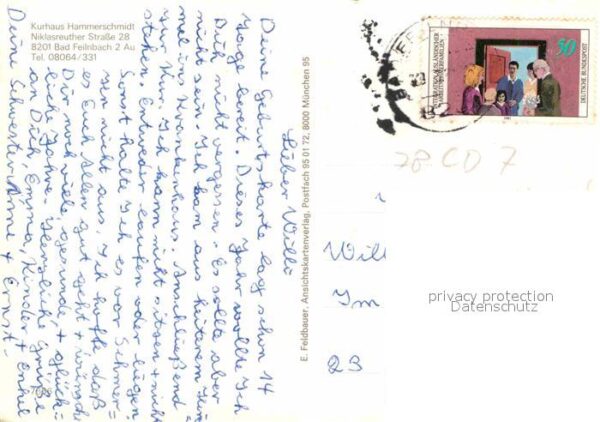 Kurhaus Hammerschmidt
Niklasreuther Straße 28
8201 Bad Feilnbach 2 Au
Tel. 08064/331
Lieber Willi
Deine Geburtskarte lag schon 14
Tage bereit. Dieses Jahr wollte Ich
Dich nicht vergessen. Es sollte aber
nicht sein. Ich kam aus heiterem Him=
mel ins Krankenhaus. Anschließend
zur Kur. Ich kann nicht sitzen + nicht
stehen. Entweder laufen oder liegen.
Sonst halte Ich es vor Schmer=
zen nicht aus. Ich hoffe daß
es Euch Allen gut geht + wünsche
Dir noch viele, gesunde, + glück=
liche Jahre. Herzliche Grüße
an Dich, Emma, Kinder + Enkel
Deine Schwester Anne + Ernst.
E. Feldbauer, Ansichtskartenverlag, Postfach 95 01 72, 8000 München 95
INTEGRATION AUSLÄNDISCHER
ARBEITNEHMERFAMILIEN
50
DEUTSCHE BUNDESPOST
28 CD 7
Will
Im
23
privacy protection
Datenschutz